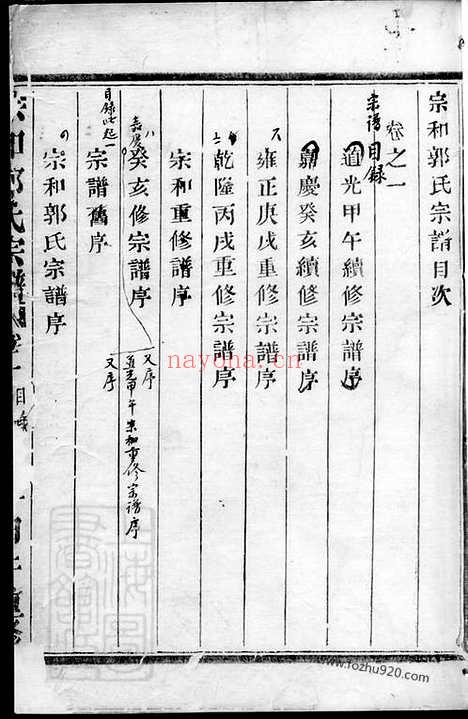 宗和郭氏宗譜目次
卷之一
宗譜目録
道光甲午續修宗譜序
嘉慶癸亥續修宗譜序
雍正庚戌重修宗譜序
乾隆丙戌重修宗譜序
宗和重修譜序
嘉慶
癸亥修宗譜序
又序
道光甲午宗和重修宗譜序
目録此起
宗譜舊序
又序
宗和郭氏宗譜序
宗和郭氏宗譜
卷一
目次
nayona.cn
www.fozhu920.com